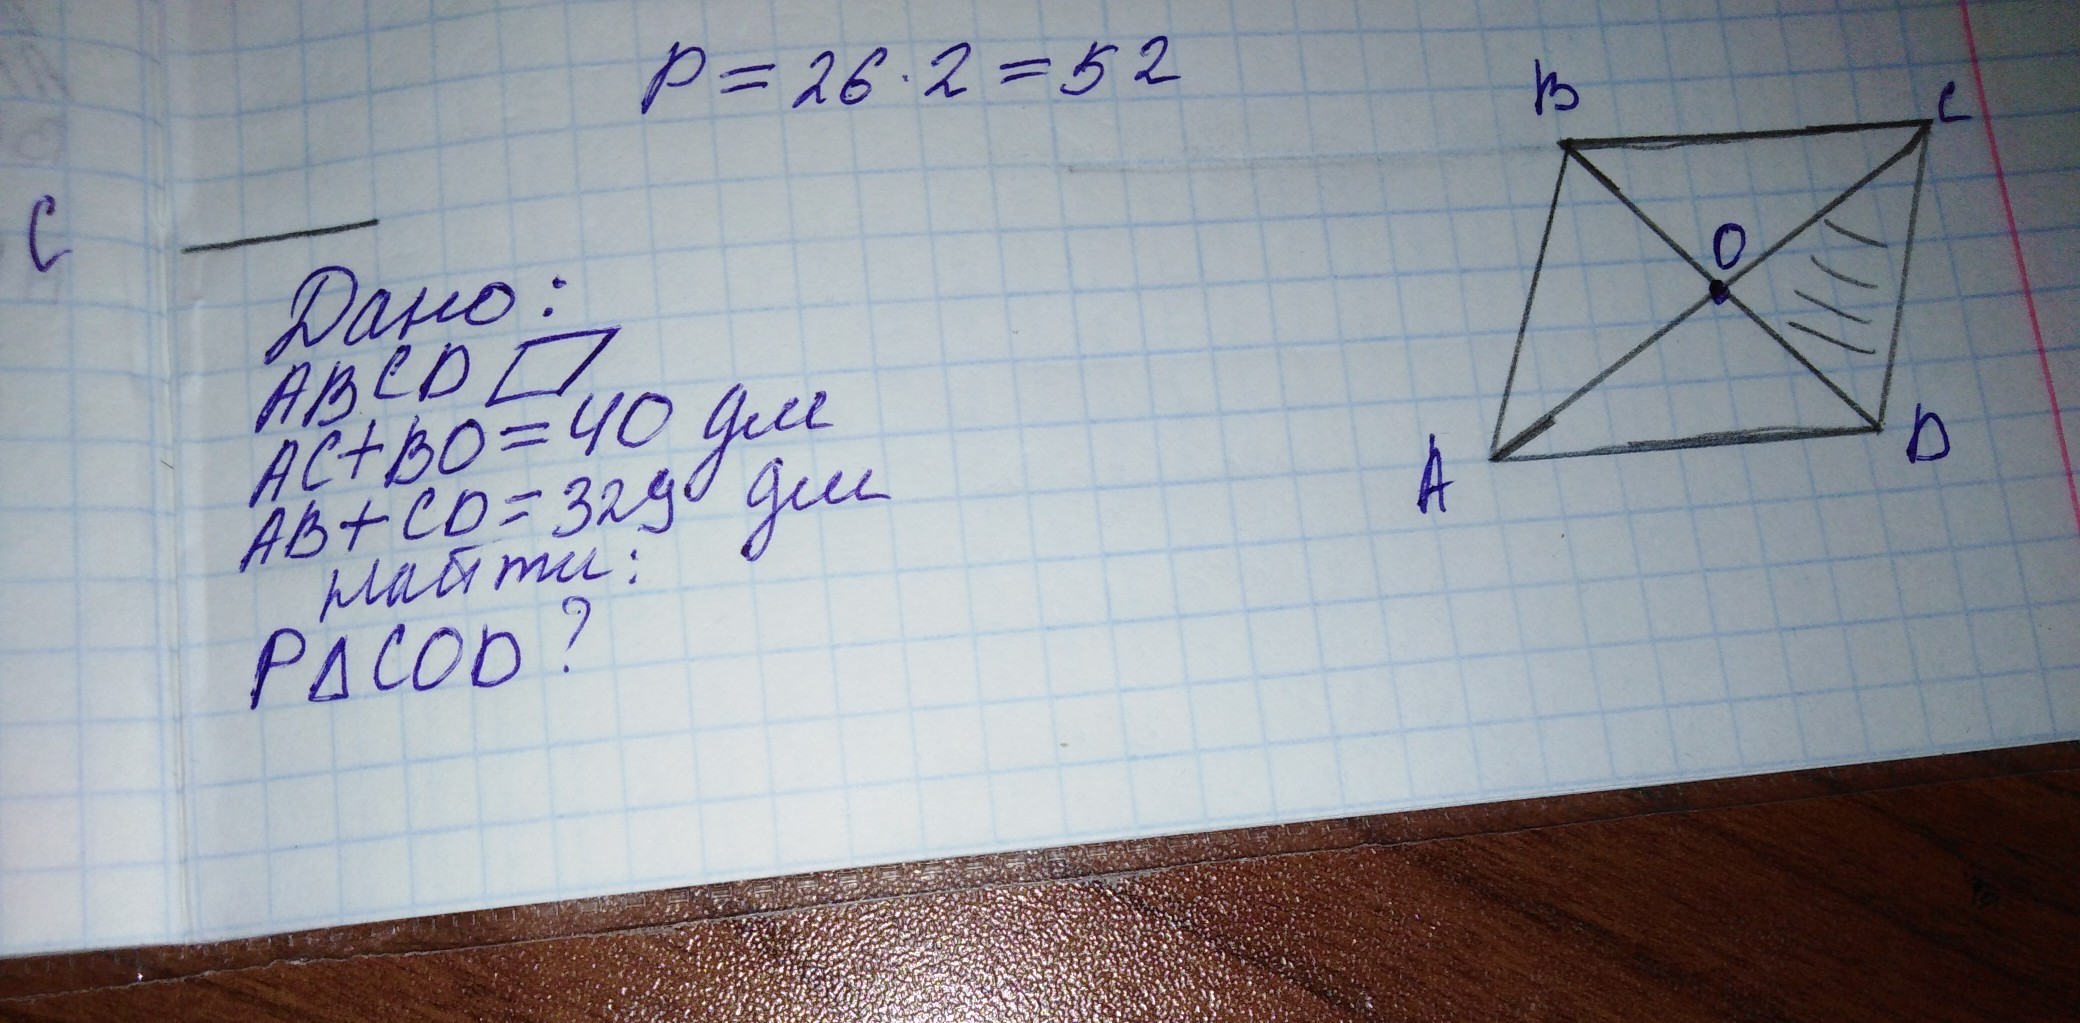 P = 26 · 2 = 52
B
C
O
A
D
C
Дано:
ABCD ▱
AC+BO=40 дм
AB+CD=32 дм
найти:
P∆COD?